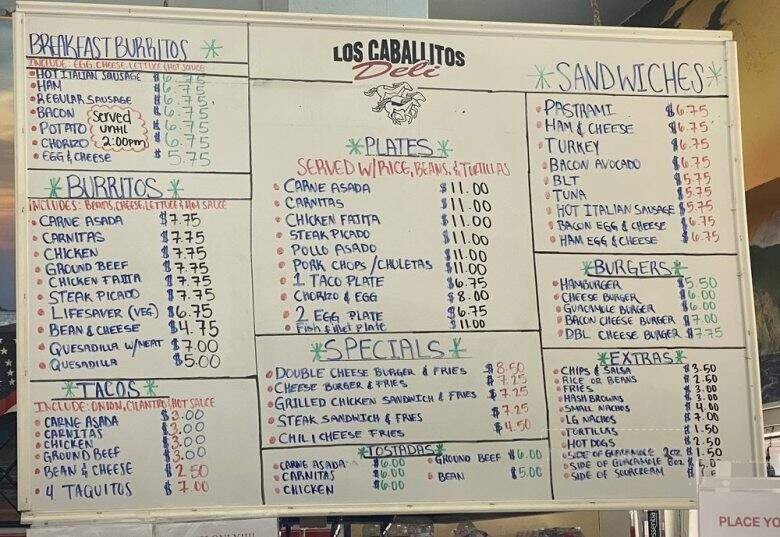 BREAKFAST BURRITOS
INCLUDE: EGG, CHEESE, LETTUCE & HOT SAUCE
HOT ITALIAN SAUSAGE $6.75
HAM $6.75
REGULAR SAUSAGE $6.75
BACON $6.75
POTATO $6.75
CHORIZO $6.75
EGG & CHEESE $5.75
Served
UNTIL
2:00pm
BURRITOS
INCLUDES: BEANS, CHEESE, LETTUCE & HOT SAUCE
CARNE ASADA $7.75
CARNITAS $7.75
CHICKEN $7.75
GROUND BEEF $7.75
CHICKEN FAJITA $7.75
STEAK PICADO $7.75
LIFESAVER (VEG.) $6.75
BEAN & CHEESE $4.75
QUESADILLA W/MEAT $7.00
QUESADILLA $5.00
TACOS
INCLUDE: ONION, CILANTRO & HOT SAUCE
CARNE ASADA $3.00
CARNITAS $3.00
CHICKEN $3.00
GROUND BEEF $3.00
BEAN & CHEESE $2.50
4 TAQUITOS $7.00
LOS CABALLITOS
Deli
PLATES
SERVED W/RICE, BEANS, & TORTILLAS
CARNE ASADA $11.00
CARNITAS $11.00
CHICKEN FAJITA $11.00
STEAK PICADO $11.00
POLLO ASADO $11.00
PORK CHOPS/CHULETAS $11.00
1 TACO PLATE $6.75
CHORIZO & EGG $8.00
2 EGG PLATE $6.75
Fish fillet Plate $11.00
SPECIALS
DOUBLE CHEESE BURGER & FRIES $8.50
CHEESE BURGER & FRIES $7.25
GRILLED CHICKEN SANDWICH & FRIES $7.25
STEAK SANDWICH & FRIES $7.25
CHILI CHEESE FRIES $4.50
TOSTADAS
CARNE ASADA $6.00
CARNITAS $6.00
CHICKEN $6.00
GROUND BEEF $6.00
BEAN $5.00
SANDWICHES
PASTRAMI $6.75
HAM & CHEESE $6.75
TURKEY $6.75
BACON AVOCADO $6.75
BLT $5.75
TUNA $5.75
HOT ITALIAN SAUSAGE $5.75
BACON EGG & CHEESE $6.75
HAM EGG & CHEESE $6.75
BURGERS
HAMBURGER $5.50
CHEESE BURGER $6.00
GUACAMOLE BURGER $6.00
BACON CHEESE BURGER $7.00
DBL CHEESE BURGER $7.75
EXTRAS
CHIPS & SALSA $3.50
RICE OR BEANS $2.50
FRIES $3.00
HASH BROWNS $3.00
SMALL NACHOS $4.00
LG NACHOS $7.00
TORTILLAS $1.50
HOT DOGS $2.50
SIDE OF GUACAMOLE 2oz $1.50
SIDE OF GUACAMOLE 8oz
SIDE OF SOURCREAM
PLACE YO